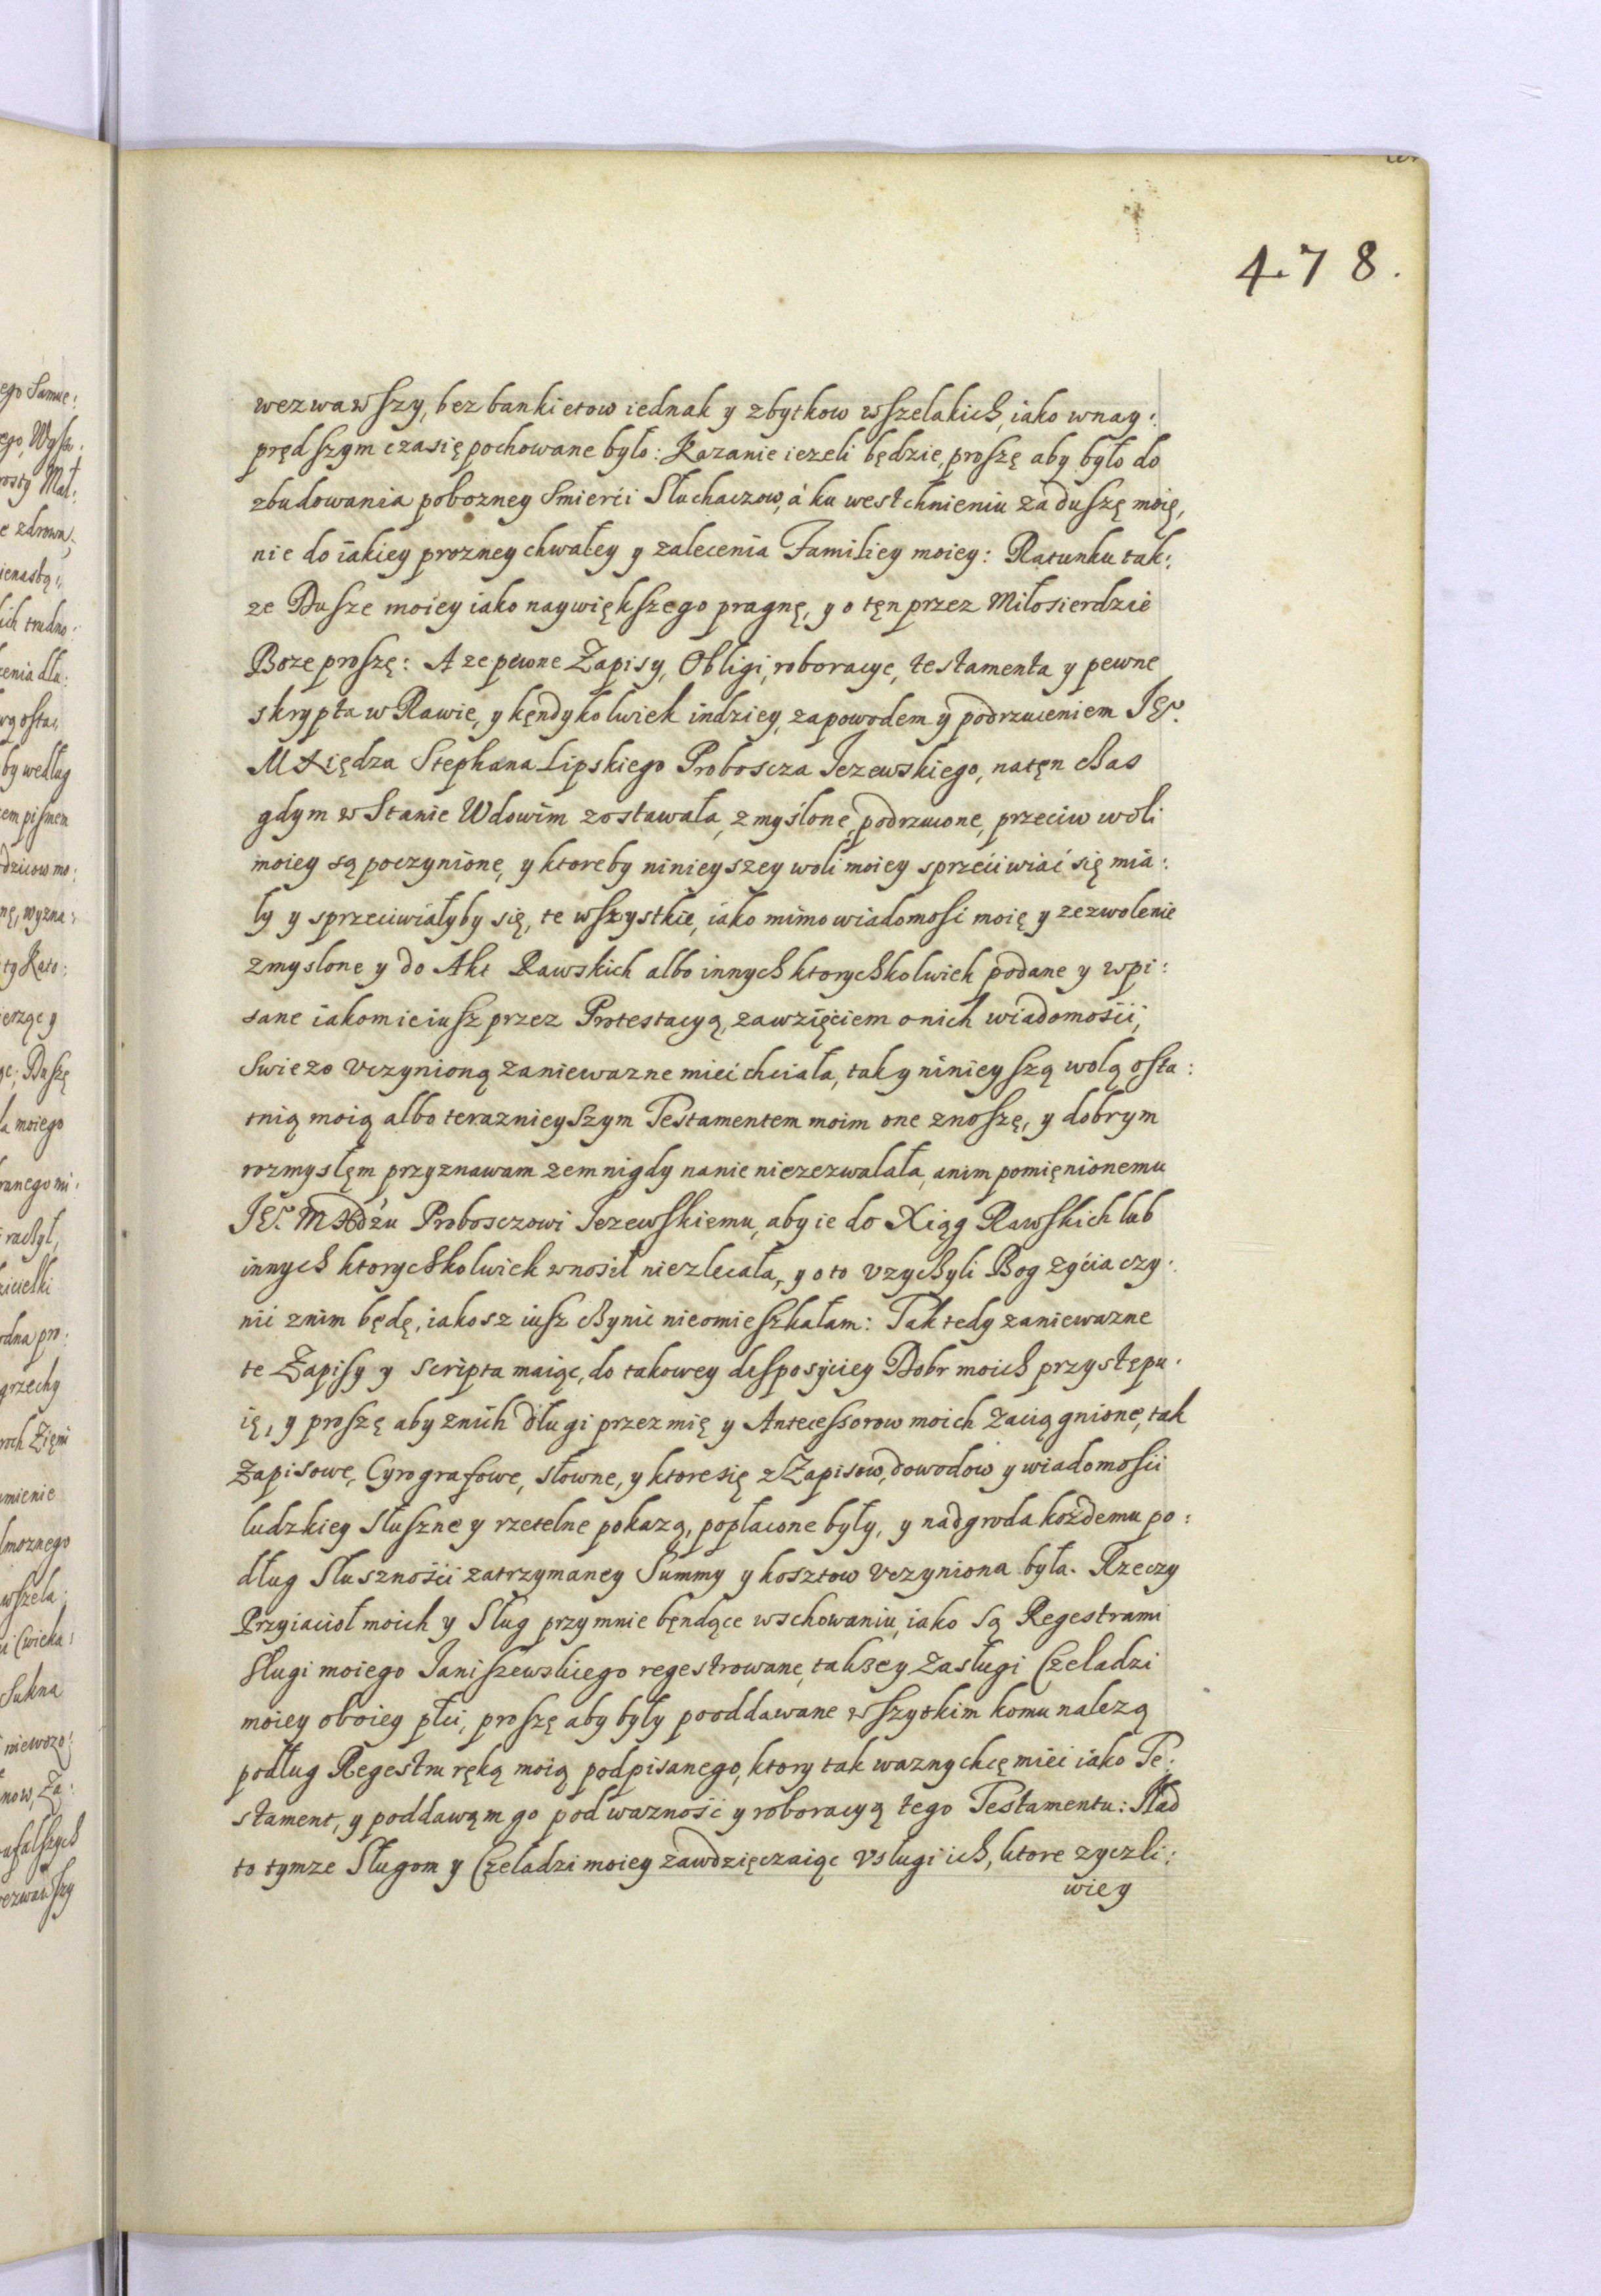 478.
wezwawszy, bez bankietow iednak y zbytkow wszelakich, iako wnay:
prędszym czasię pochowane było: Kazanie iezeli będzie, proszę aby było do
zbudowania pobozney Smierći Słuchaczow, á ku westchnieniu za duszę moię,
nie do iakiey prozney chwałey y zalecenia Familiey moiey: Ratunku tak:
ze Dusze moiey iako naywiększego pragnę, y o tęn przez Miłosierdzie
Boze proszę: A ze pewne Zapisy, Obligi, roboracye, testamenta y pewne
skrypta w Rawie, y kęndykolwiek indziey, za powodem y podrzuceniem JE°.
M Xiędza Stephana Lipskiego Proboscza Jezewskiego, natęn czas
gdym w Stanie Wdowim zostawała, zmyślone, podrzucone, przeciw woli
moiey są poczynionę, y ktoreby ninieyszey woli moiey sprzećiwiać się mia:
ły y sprzeciwiałyby się, te wszystkie, iako mimo wiadomosi moię y zezwolenie
zmyslone y do Akt Rawskich albo innych ktorychkolwiek podane y wpi:
sane iakom ie iusz przez Protestacyą, zawzięćiem o nich wiadomośći,
Swiezo vczynioną za niewazne mieć chciała, tak y ninieyszą wolą osta:
tnią moią albo teraznieyszym Testamentem moim one znoszę, y dobrym
rozmysłęm przyznawam zem nigdy nanie niezezwalała, anim pomięnionemu
JE°. M Xdzu Probosczowi Jezewskiemu, aby ie do Xiąg Rawskich lub
innych ktorychkolwiek wnosił niezlecała, y o to vzyczyli Bog zyćia czy:
nić znim będę, iakosz iusz czynić nieomieszkałam: Tak tedy zaniewazne
te Zapisy y Scripta maiąc, do takowey desposyciey Dobr moich przystępu:
ię, y proszę aby znich długi przez mię y Antecessorow moich zaciągnione, tak
Zapisowe, Cyrografowe, słowne, y ktore się z Zapisow, dowodow y wiadomosći
ludzkiey słuszne y rzetelne pokazą, popłacone były, y nadgroda kozdemu po:
dług słusznośći zatrzymaney Summy y kosztow vczyniona była. Rzeczy
Przyiacioł moich y Sług przy mnie będące w schowaniu, iako są Regestrami
sługi moiego Janiszewskiego regestrowane, takze y zasługi Czeladzi
moiey oboiey płci, proszę aby były pooddawane wszytkim komu nalezą
podług Regestru ręką moią podpisanego, ktory tak wazny chcę mieć iako Te:
stament, y poddawąm go pod wazność y roboracyą tego Testamentu: Nad
to tymze Sługom y Czeladzi moiey zawdzięczaiąc vsługi ich, ktore zyczli:
wiey